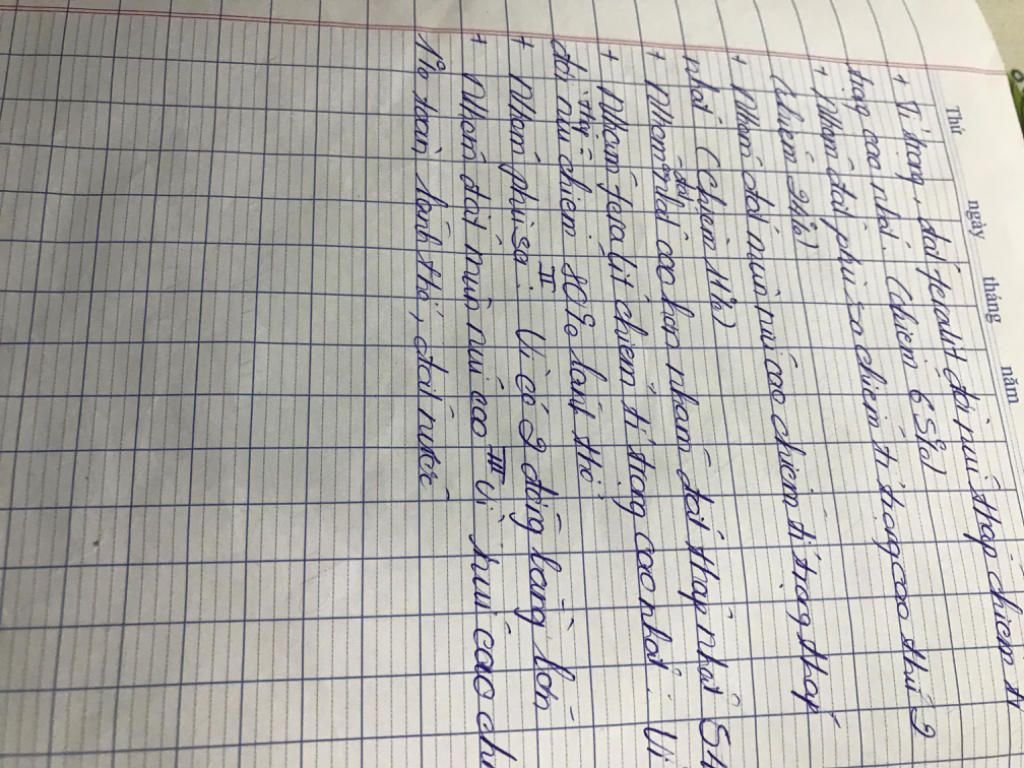 Thứ ngày tháng năm
+ Tỉ trọng, đất feralit đồi núi thấp chiếm tỉ
trọng cao nhất. (chiếm 65%)
+ Nhóm đất phù sa chiếm tỉ trọng cao thứ 2
(chiếm 24%)
+ Nhóm đất mùn núi cao chiếm tỉ trọng thấp
nhất (chiếm 11%)
+ Nhóm đất cao hơn nhóm đất thấp nhất 54
+ Nhóm feralit chiếm tỉ trọng cao nhất. Vì
đồi núi thấp chiếm 80% lãnh thổ
+ Nhóm phù sa II Vì có 2 đồng bằng lớn
+ Nhóm đất mùn núi cao III vì núi cao chi
1% toàn lãnh thổ, đất nước